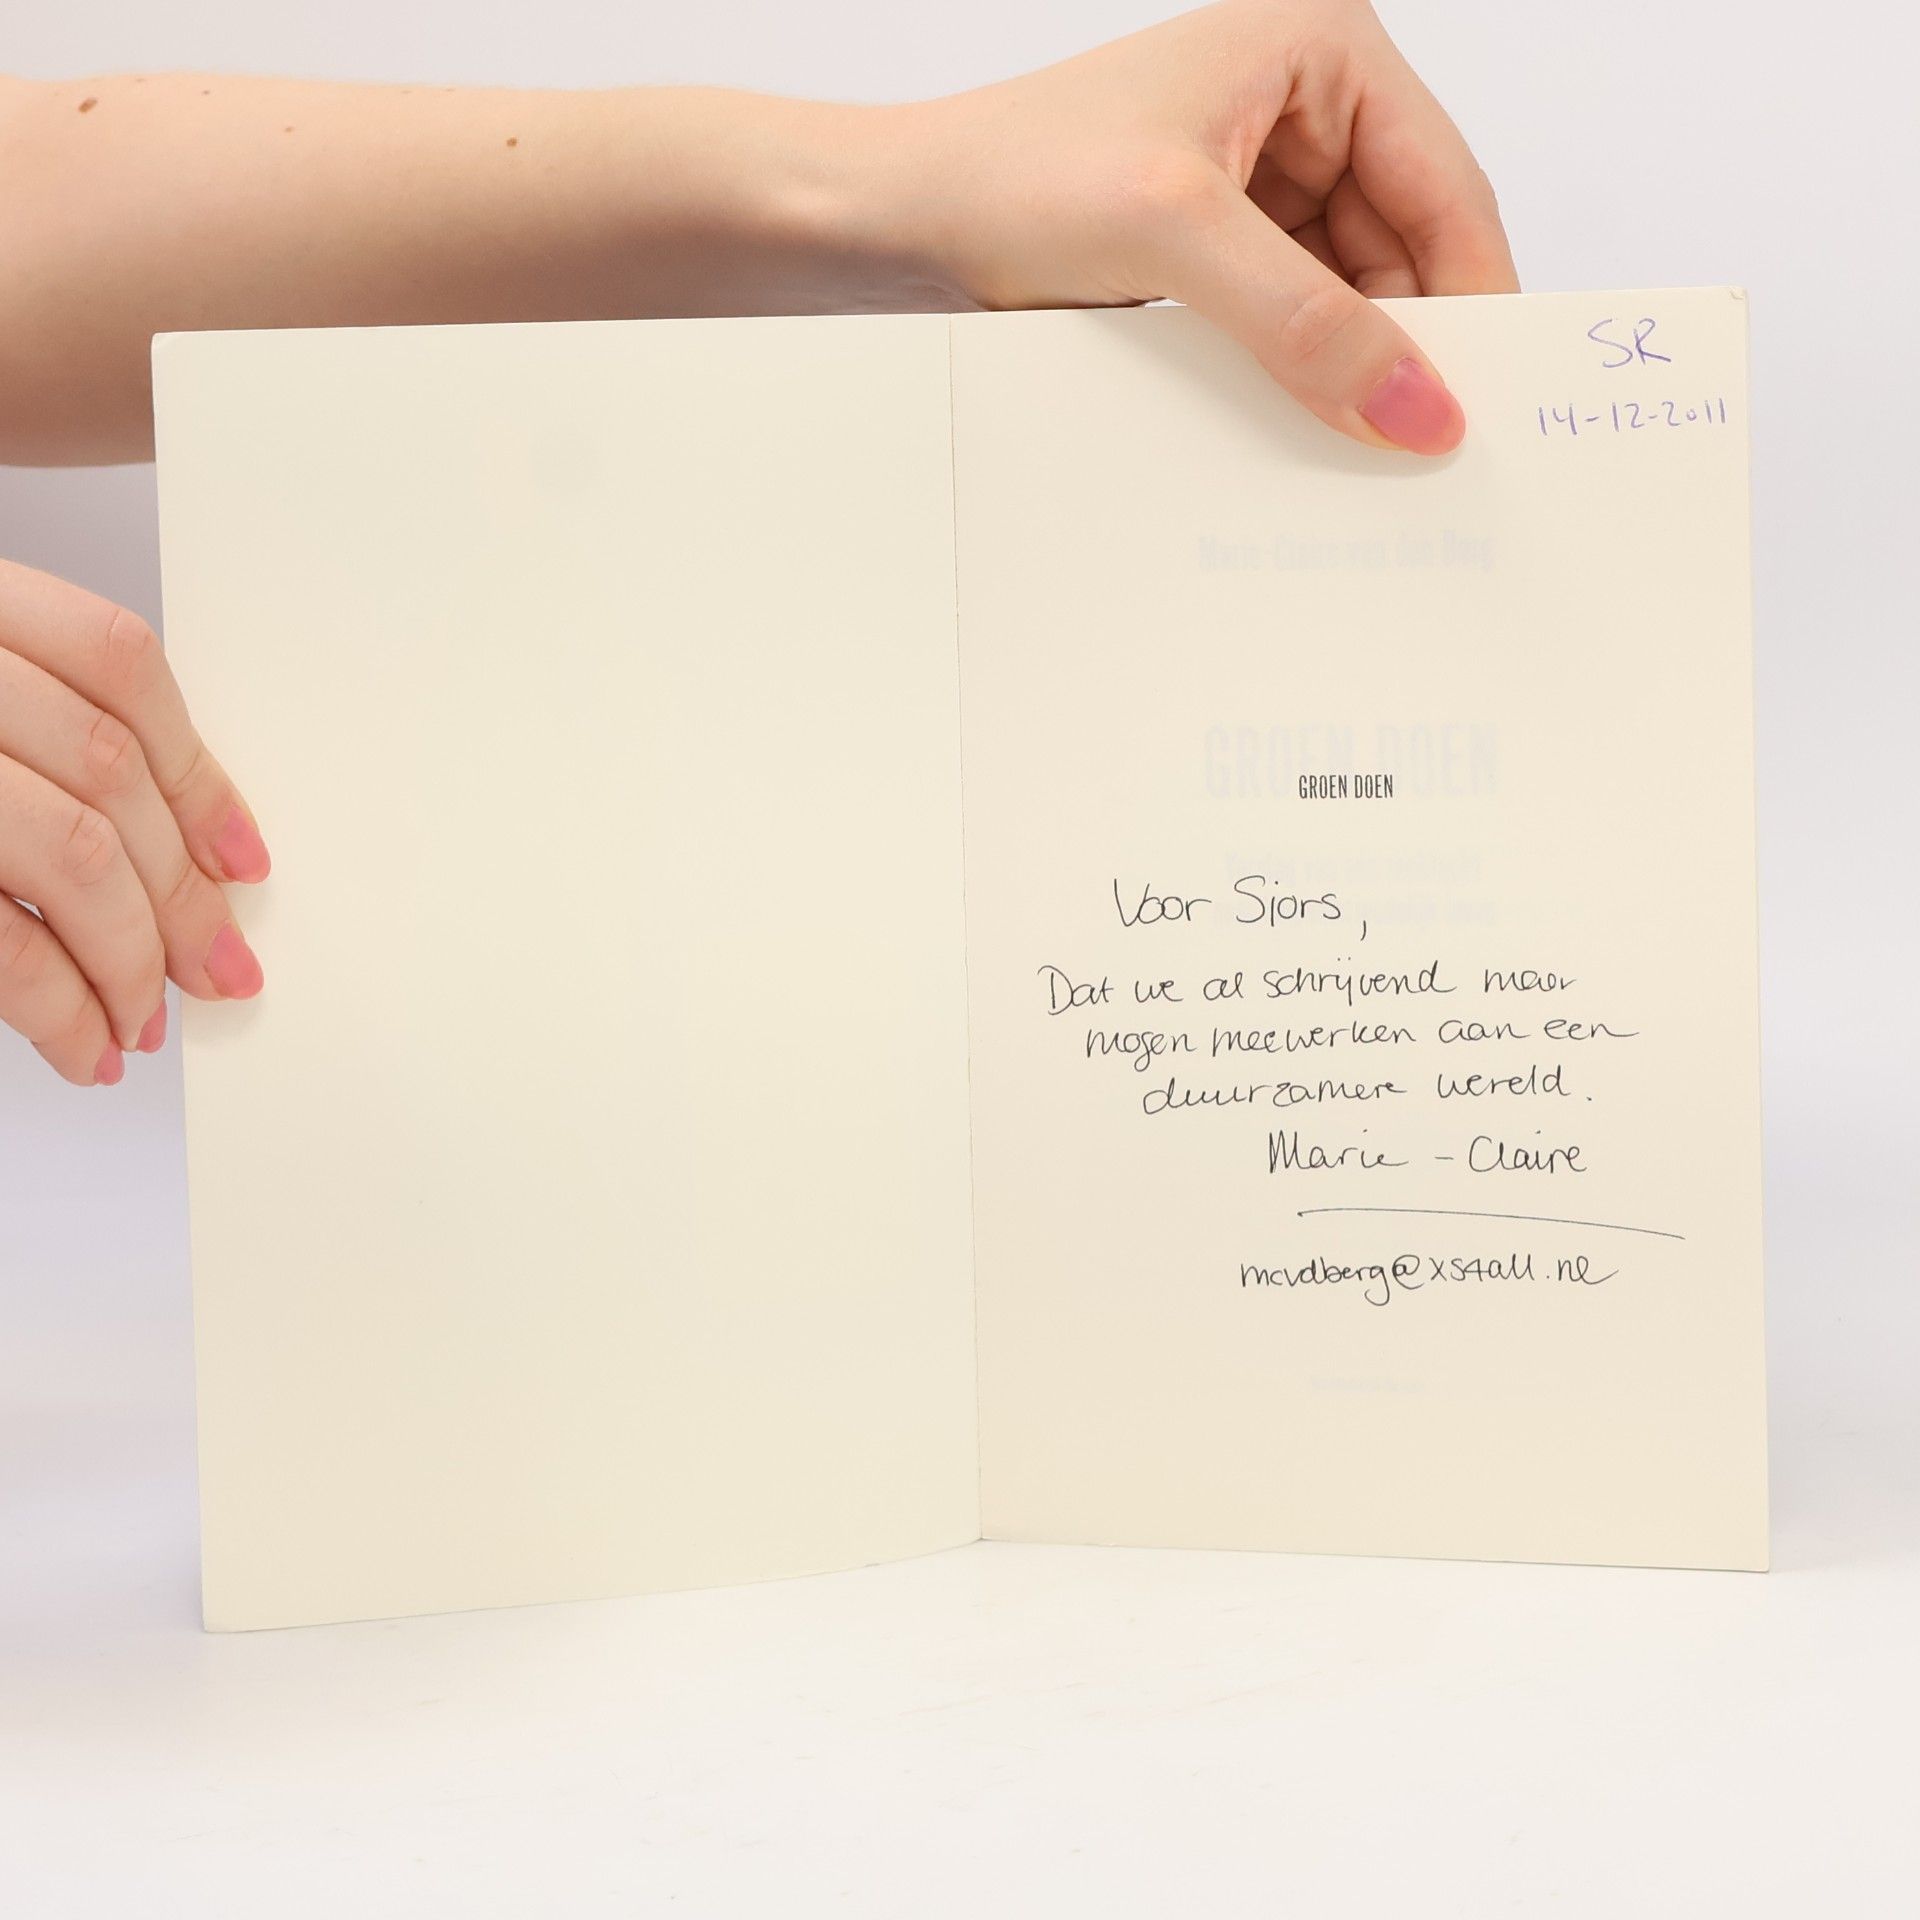 SR
14-12-2011
Marie-Claire van den Berg
GROEN DOEN
GROEN DOEN
Voor Sjors,
Dat we al schrijvend maar
mogen meewerken aan een
duurzamere wereld.
Marie - Claire
mcvdberg@xs4all.nl